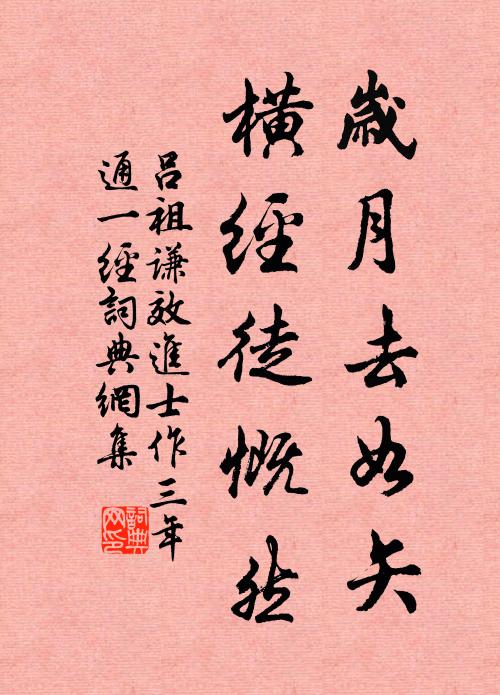 歲月去如矢
橫經徒慨然
呂祖謙效進士作三年
通一經詞典網集
詞典
网印